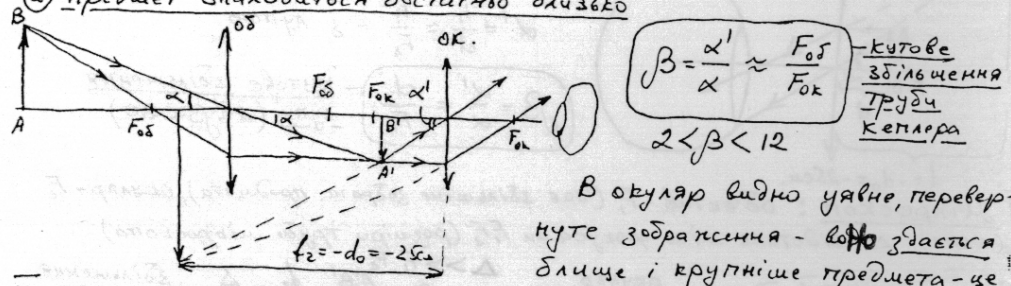 2) предмет знаходиться достатньо близько
B
об
ок.
α
Fоб
Fок
α'
A
Fоб
α
B'
Fок
A'
f₂ = -d₀ = -25см
β = α'/α ≈ Fоб/Fок
- кутове
збільшення
труби
кеплера
2 < β < 12
В окуляр видно уявне, перевер-
нуте зображення воно здається
ближче і крупніше предмета - це